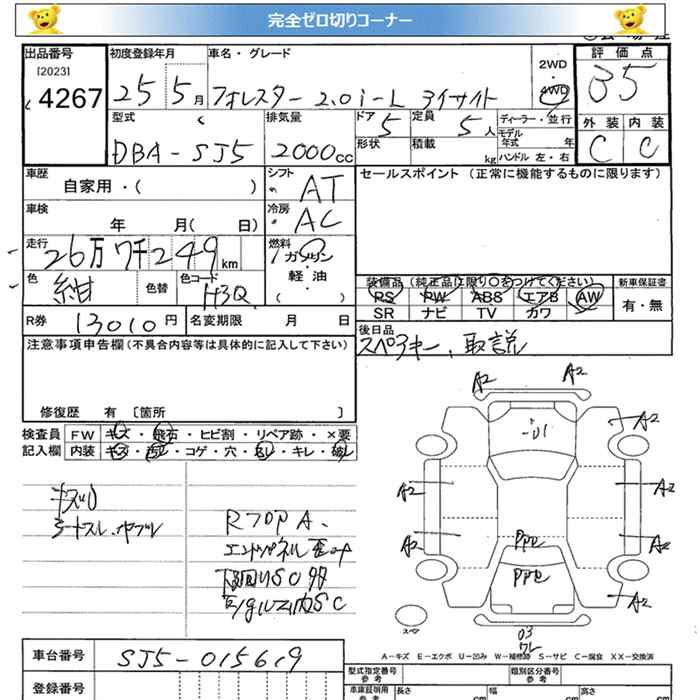 完全ゼロ切りコーナー
出品番号
[2023]
4267
初度登録年月
25 5月
車名・グレード
フォレスター 2.0i-L アイサイト
2WD
・
4WD
評価点
B5
型式
DBA-SJ5
排気量
2000cc
ドア 5
形状
定員 5人
積載 kg
ディーラー・並行
モデル年式 年
ハンドル 左・右
外装 内装
C C
車歴
自家用・( )
シフト
AT
セールスポイント (正常に機能するものに限ります)
車検
年 月( 日)
冷房
AC
走行
26万7千249km
燃料
ガソリン
軽・油
( )
色
紺
色替
色コード
H3Q
装備品 (純正品に限り○をつけてください)
PS PW ABS エアB AW
SR ナビ TV カワ
新車保証書
有・無
R券 13010円
名変期限 月 日
後日品
スペアキー、取説
注意事項申告欄(不具合内容等は具体的に記入して下さい)
修復歴 有 [箇所 ]
検査員
記入欄
FW キズ・飛石・ヒビ割・リペア跡・×要
内装 キズ・コゲ・穴・キレ・
A2 A2
A2
A2 A2
A2 A2
A2
PPE
PPE
03
ワレ
スペア
RフロアA、
エンドパネル歪
下回りSC
A-キズ E-エクボ U-凹み W-補修跡 S-サビ C-腐食 XX-交換済
車台番号
SJ5-015619
登録番号
型式指定番号
参考
類別区分番号
参考
車庫証明用
参考
長さ cm
幅 cm
高さ cm